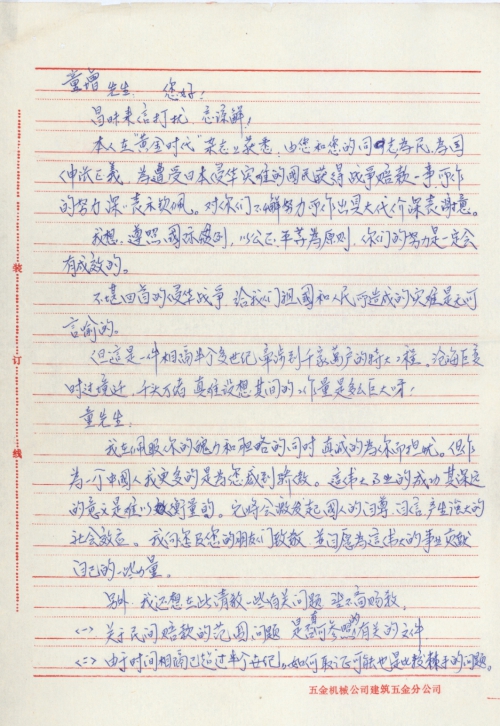 童增先生: 您好!
冒昧来信打扰, 忘谅解!
本人在“黄金时代”杂志上获悉, 由您和您的同志为民、为国
伸张正义, 为遭受日本侵华灾难的国民获得战争赔款一事, 所作
的努力深深表示钦佩。对你们不懈努力所作出巨大代价深表谢意。
我想, 遵照国际惯例, 以公正、平等为原则, 你们的努力是一定会
有成效的。
不堪回首的侵华战争, 给我们祖国和人民所造成的灾难是无可
言喻的。
但这是一件相隔半个多世纪, 牵涉到千家万户的特大工程。沧海巨变
时过境迁, 千头万绪, 真难设想其间的工作量是多么巨大呀!
童先生:
我在佩服你的魄力和胆略的同时, 真诚的为你而担忧。但作
为一个中国人我更多的是为您感到骄傲。这伟大事业的成功其深远
的意义是难以衡量的。它将会激发起国人的自尊、自信产生强大的
社会效应。我向您及您的朋友们致敬, 并自愿为这伟大的事业贡献
自己的一些力量。
另外, 我还想在此请教一些有关问题, 望不啬赐教,
(一) 关于民间赔款的范围问题, 是否可参照有关的文件
(二) 由于时间相隔已超过半个世纪。如何取证可能也是比较棘手的问题。
装
订
线
五金机械公司建筑五金分公司